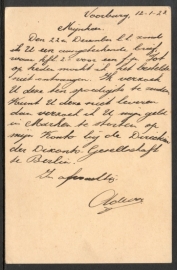 Voorburg, 12-1-22
Mijnheer
Den 22en December l.l. zond
ik U een aangeteekende brief
waarin
op heden mocht ik het bestelde
niet ontvangen. Ik verzoek
U deze ten spoedigste te zenden
Kunt U deze niet leveren
dan verzoek ik U mijn geld
in Marken te storten op
mijn Konto bij de Direction
der Diskonto Gesellschaft
te Berlin.